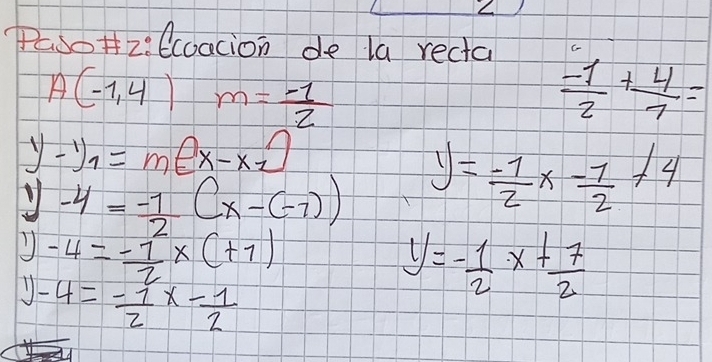 2
Paso #2: Ecuación de la recta
A(-1,4) m = -1/2
-1/2 + 4/1 =
y - y1 = m(x - x1)
y - 4 = -1/2 (x - (-1))
y - 4 = -1/2 x (+1)
y - 4 = -1/2 x - 1/2
y = -1/2 x - 1/2 + 4
y = -1/2 x + 7/2